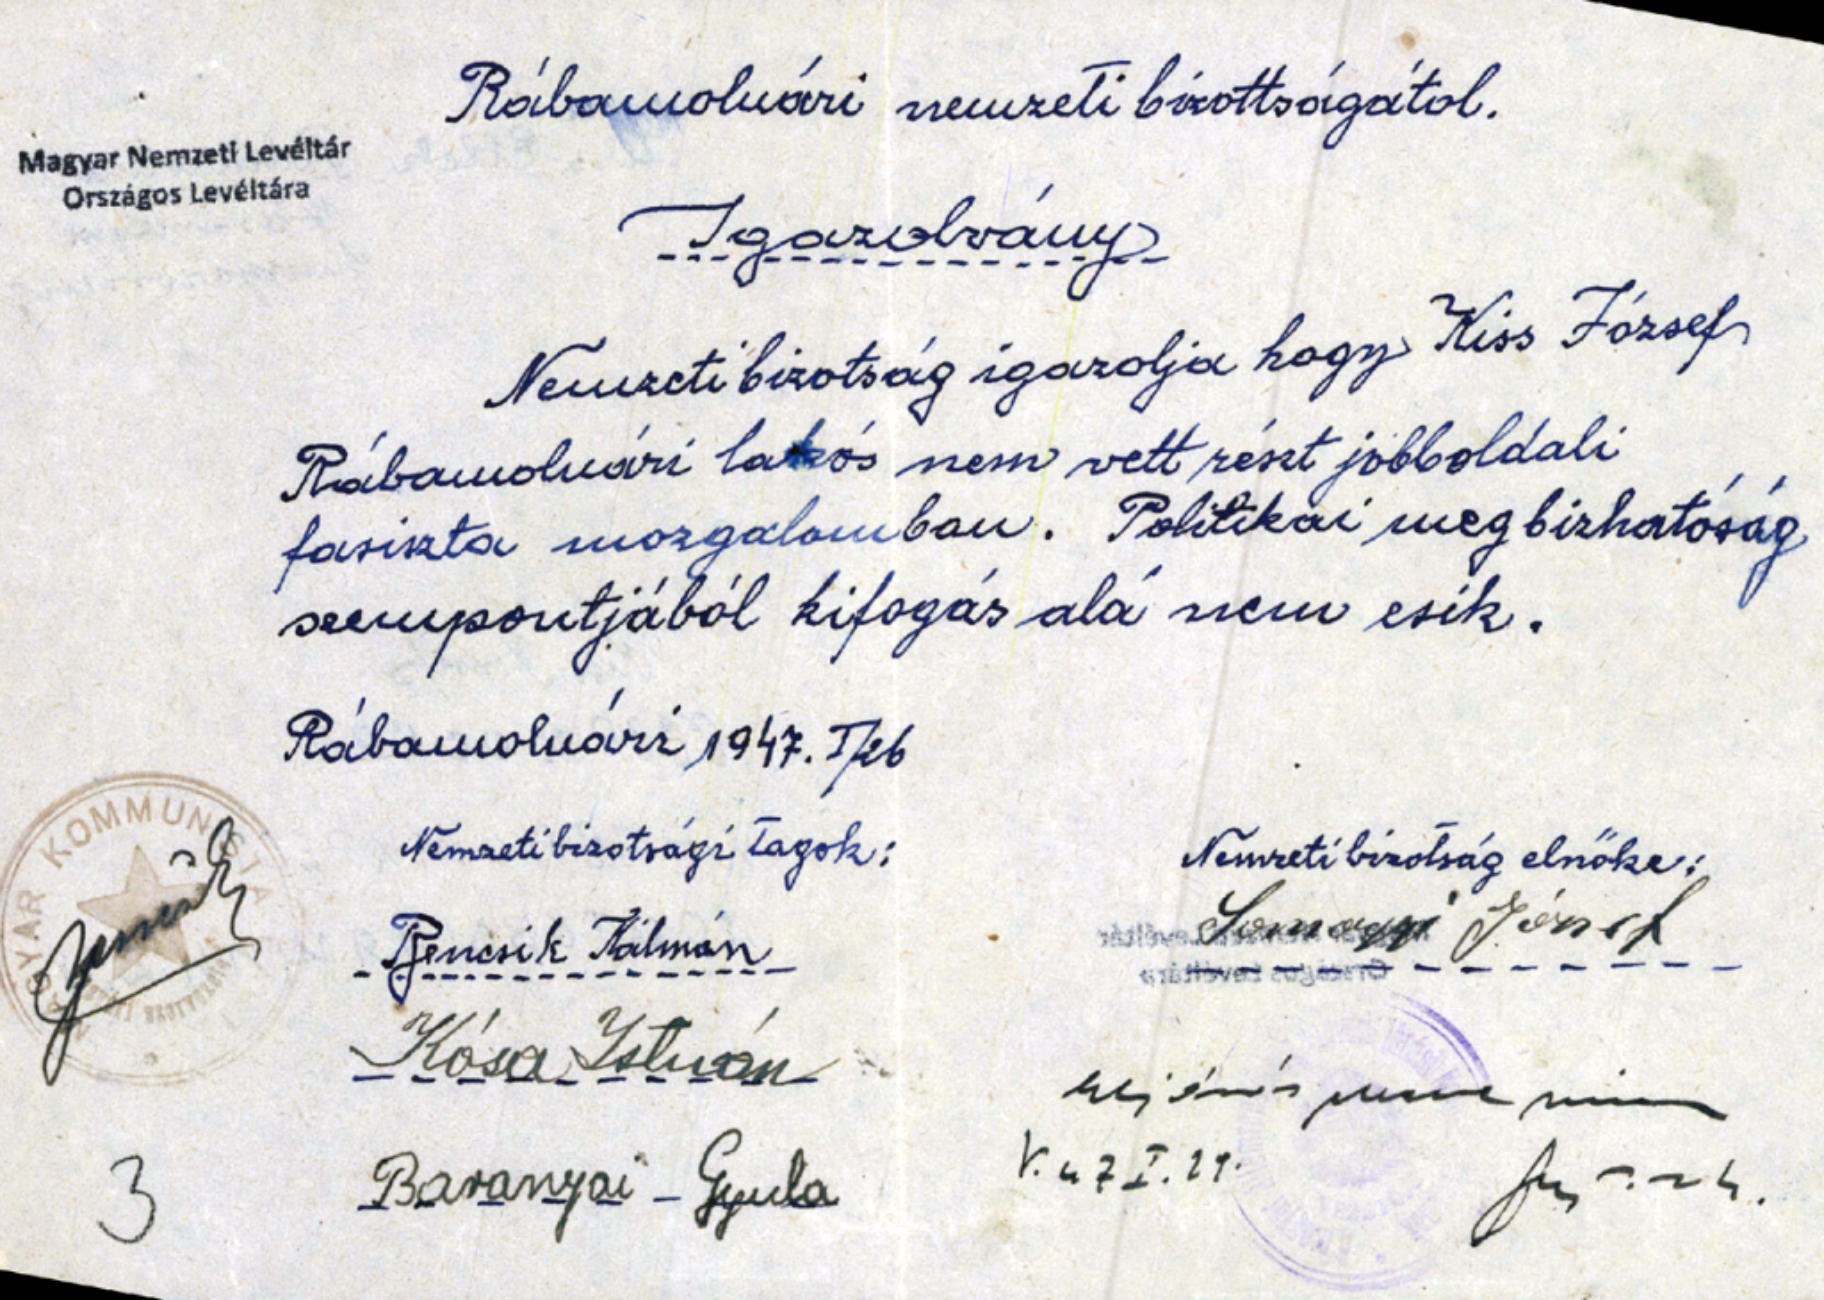 Rábamolnári nemzeti bizottságátol.
Magyar Nemzeti Levéltár
Országos Levéltára
Igazolvány
Nemzeti bizotság igazolja hogy Kiss József
Rábamolnári lakós nem vett részt jobboldali
fasiszta mozgalomban. Politikai megbizhatóság
szempontjából kifogás alá nem esik.
Rábamolnári 1947. I/26
MAGYAR KOMMUNISTA
Nemzeti bizotsági tagok:
Nemzeti bizotság elnöke:
Somogyi József
Bencsik Kálmán
Kósa István
V. 47 I. 29.
Baranyai Gyula
3